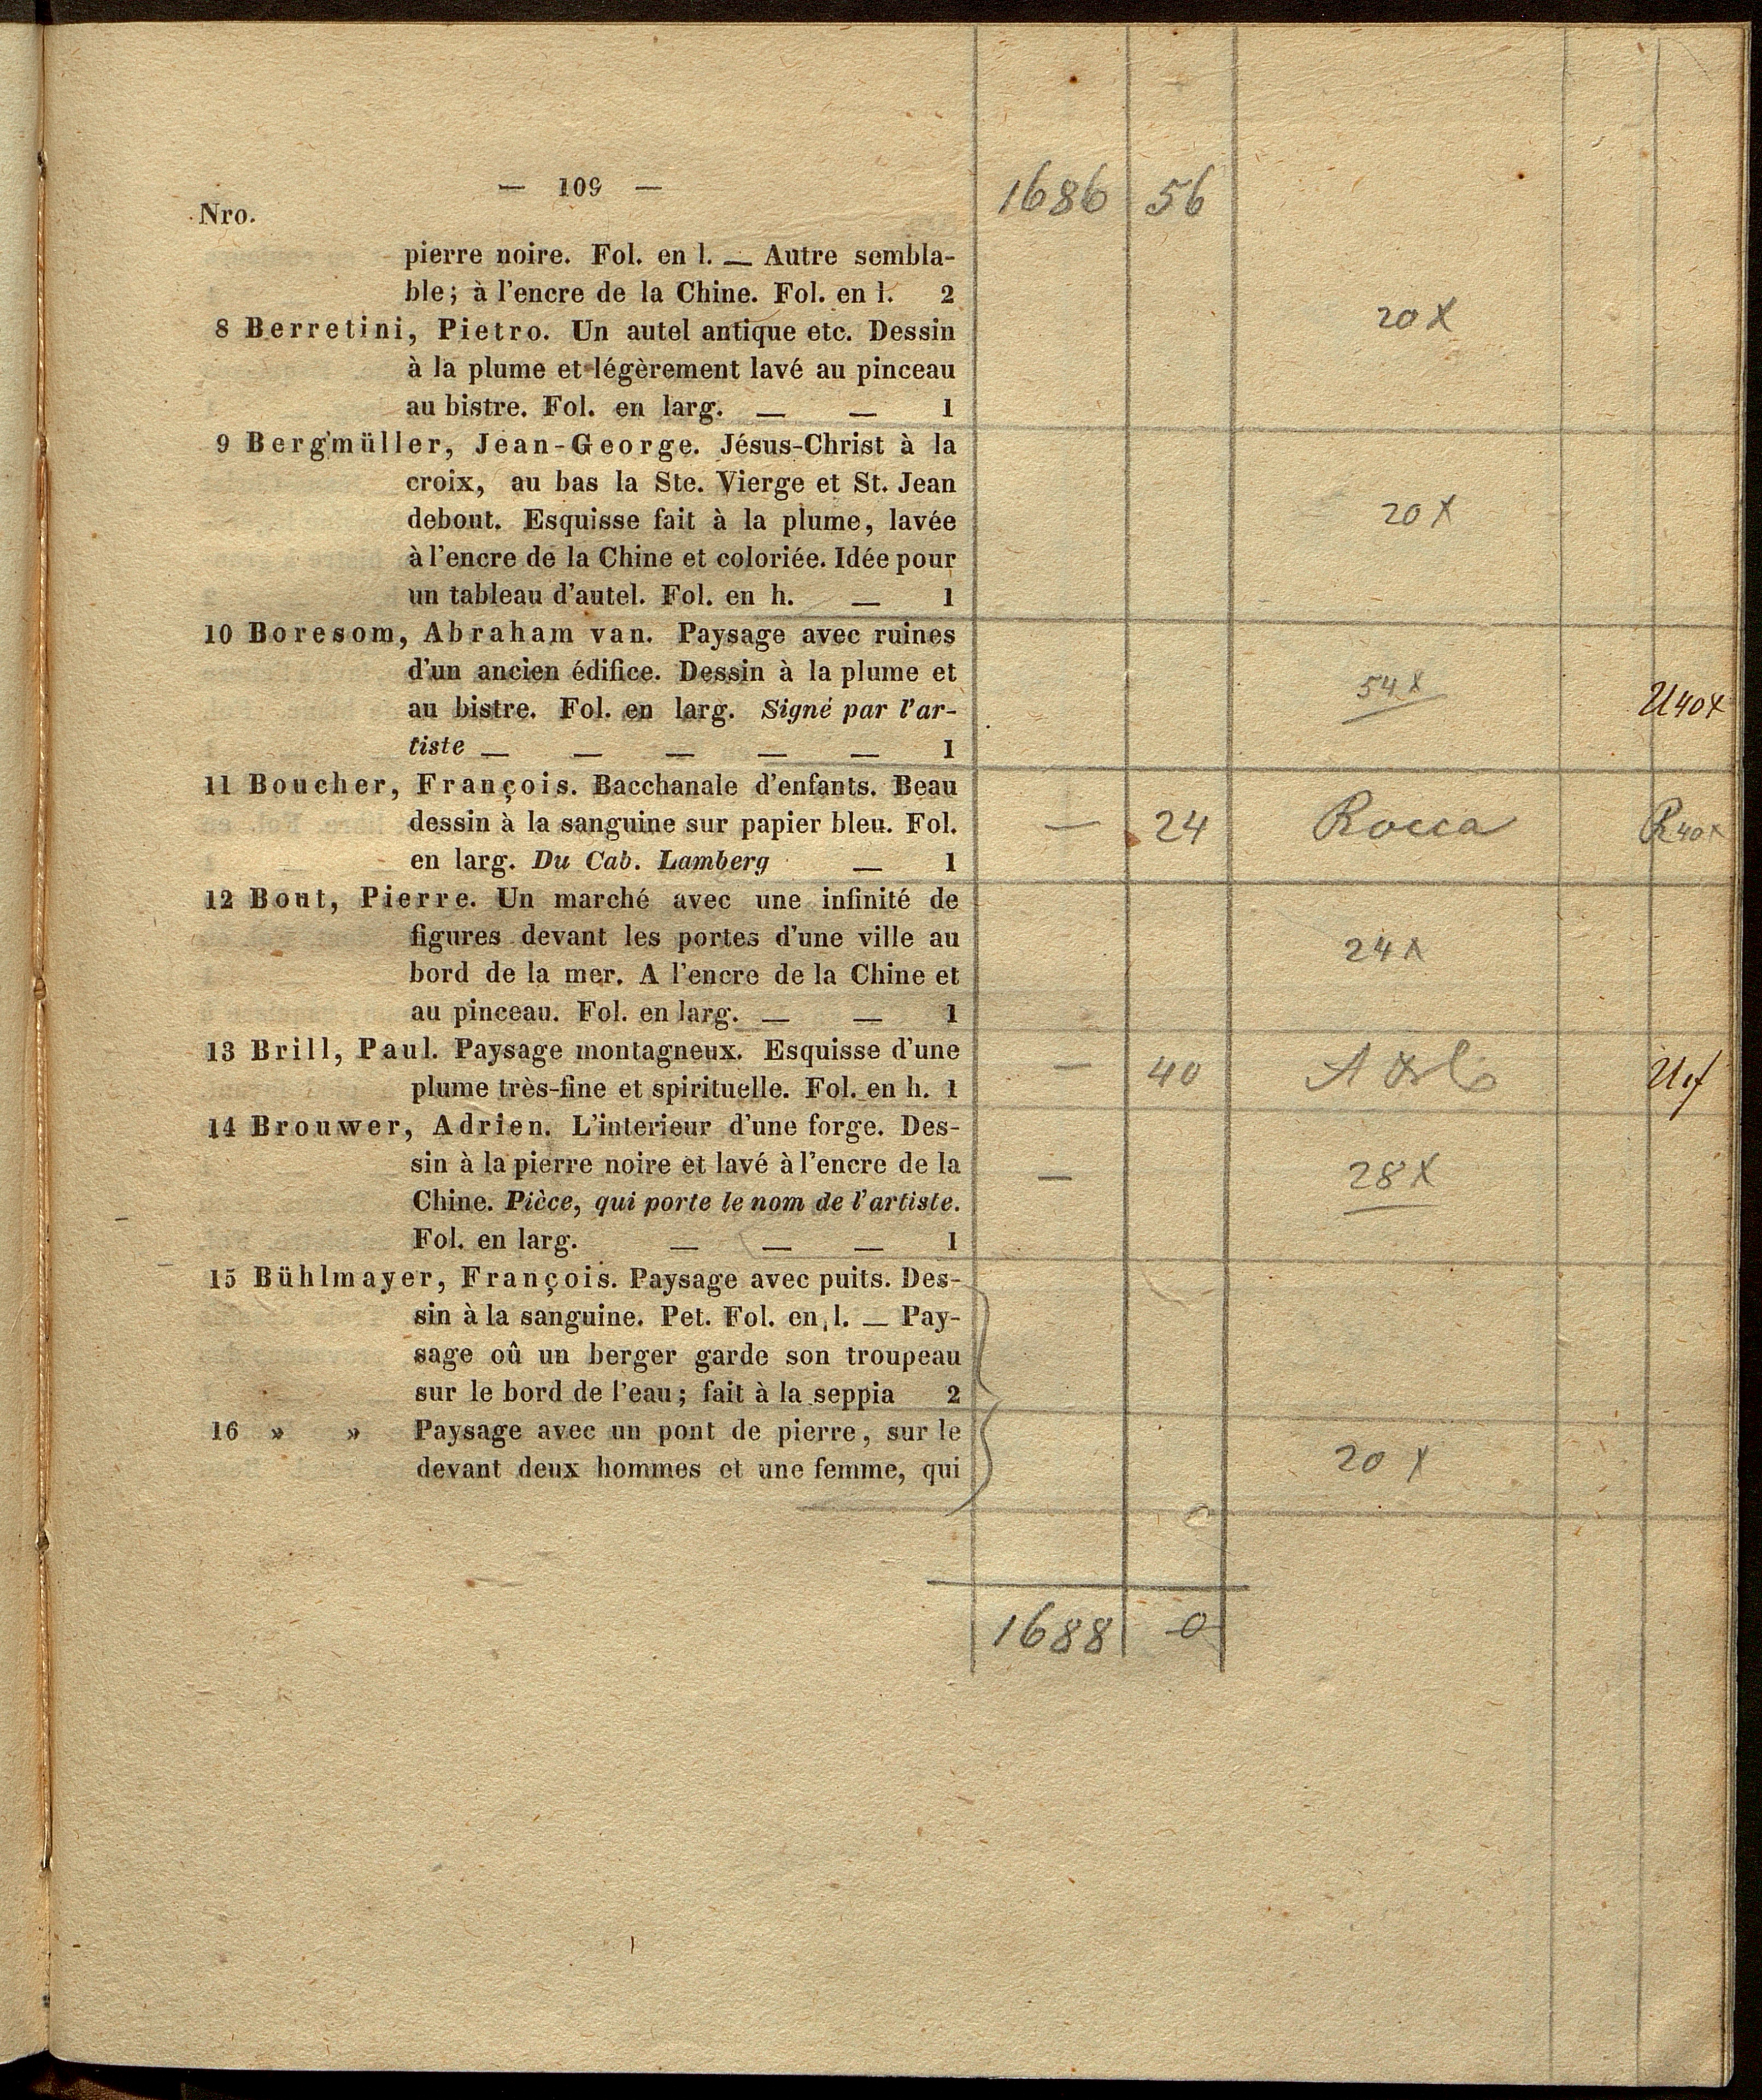 — 109 —
1686 56
Nro.
pierre noire. Fol. en l. — Autre sembla-
ble; à l'encre de la Chine. Fol. en l. 2
20 x
8 Berretini, Pietro. Un autel antique etc. Dessin
à la plume et légèrement lavé au pinceau
au bistre. Fol. en larg. — — 1
9 Bergmüller, Jean-George. Jésus-Christ à la
croix, au bas la Ste. Vierge et St. Jean
debout. Esquisse fait à la plume, lavée
20 x
à l'encre de la Chine et coloriée. Idée pour
un tableau d'autel. Fol. en h. — 1
10 Boresom, Abraham van. Paysage avec ruines
d'un ancien édifice. Dessin à la plume et
54 x
au bistre. Fol. en larg. Signé par l'ar-
U 40 x
tiste — — — — — 1
11 Boucher, François. Bacchanale d'enfants. Beau
dessin à la sanguine sur papier bleu. Fol.
— 24 Rocca R 40 x
en larg. Du Cab. Lamberg — 1
12 Bout, Pierre. Un marché avec une infinité de
figures devant les portes d'une ville au
24 x
bord de la mer. A l'encre de la Chine et
au pinceau. Fol. en larg. — — 1
13 Brill, Paul. Paysage montagneux. Esquisse d'une
plume très-fine et spirituelle. Fol. en h. 1
— 40
14 Brouwer, Adrien. L'interieur d'une forge. Des-
sin à la pierre noire et lavé à l'encre de la
— 28 x
Chine. Pièce, qui porte le nom de l'artiste.
Fol. en larg. — — — 1
15 Bühlmayer, François. Paysage avec puits. Des-
sin à la sanguine. Pet. Fol. en l. — Pay-
sage oû un berger garde son troupeau
sur le bord de l'eau; fait à la seppia 2
16 » » Paysage avec un pont de pierre, sur le
20 x
devant deux hommes et une femme, qui
1688 0